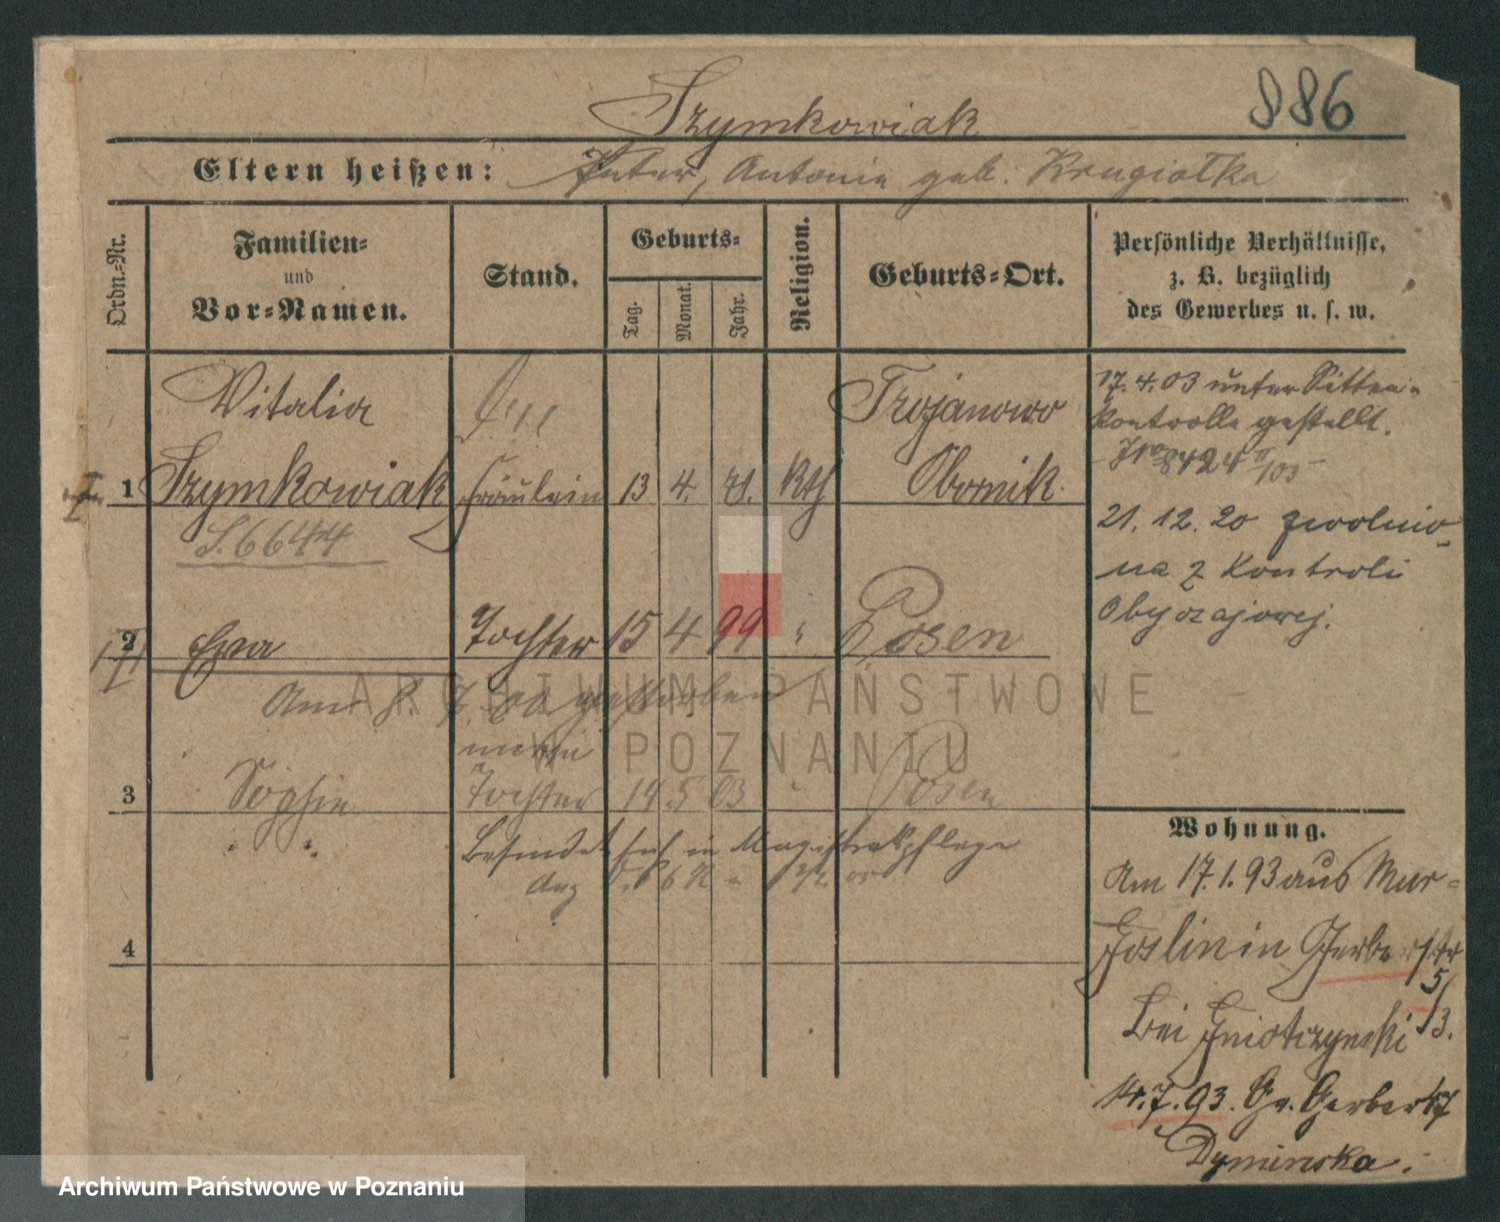 886
Szymkowiak
Eltern heißen: Peter, Antonie geb. Krugiolka
Ordn.-Nr.
Familien-
und
Vor-Namen.
Stand.
Geburts-
Tag.
Monat.
Jahr.
Religion.
Geburts-Ort.
Persönliche Verhältnisse,
z. B. bezüglich
des Gewerbes u. s. w.
Vitalia Trojanowo
1 Szymkowiak Fräulein 13 4. 71. Kth Obornik
S. 6644
2 Ewa Tochter 15 4 99 " Posen
Am 8. 7. gestorben
unehe
3 Sophie Tochter 14 5 03 " Posen
befindet sich in Magistratspflege
4
17. 4. 03 unter Sitten-
kontrolle gestellt.
8424 /03
21. 12. 20 zwolnio-
na z Kontroli
Obyczajowej.
Wohnung.
Am 17. 1. 93 aus Mur-
Goslin in Gerberstr
5/
13.
bei
14. 7. 93. Gr. Gerber 47
Dyminska.
ARCHIWUM PAŃSTWOWE
W POZNANIU
Archiwum Państwowe w Poznaniu